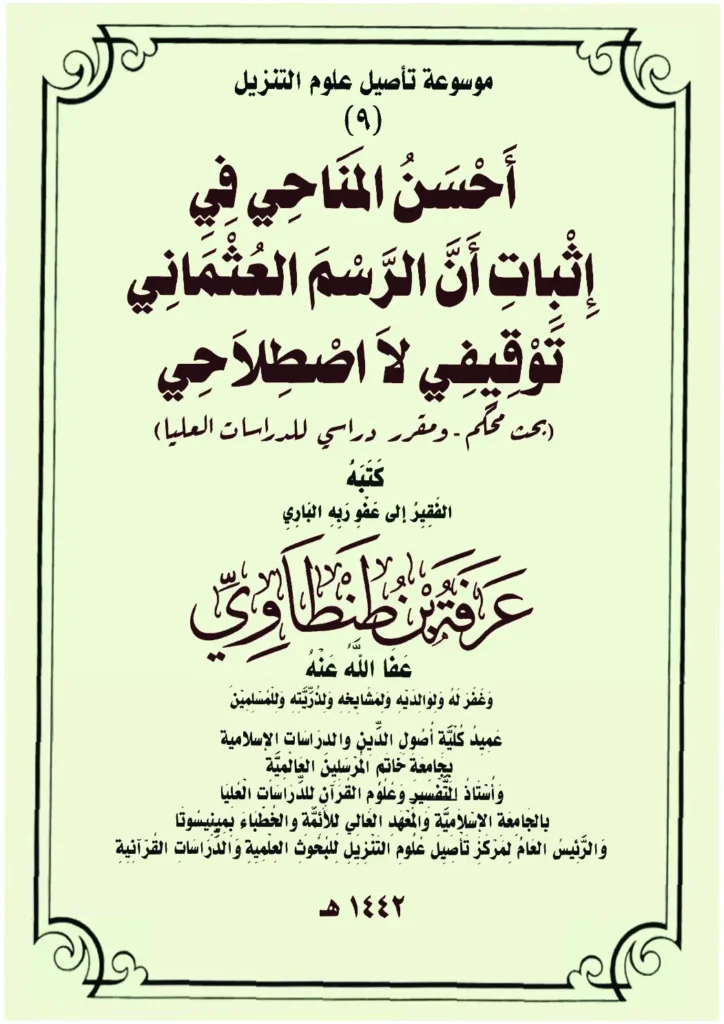 موسوعة تأصيل علوم التنزيل
(٩)
أَحْسَنُ المَنَاحِي فِي
إِثْبِاتِ أَنَّ الرَّسْمَ العُثْمَانِي
تَوْقِيفِي لاَ اصْطِلاَحِي
(بحث محكَّم - ومقرر دراسي للدراسات العليا)
كَتَبَهُ
الفَقِيرُ إلى عَفْوِ رَبِهِ البَارِي
عَرَفَةُ بْنُ طَنْطَاوِيِّ
عَفَا اللَّهُ عَنْهُ
وَغَفَرَ لَهُ وَلِوَالِدَيْهِ وَلِمَشَايِخِهِ وَلِذُرِّيَّتِهِ وَلِلْمُسْلِمِيْنَ
عَمِيدُ كُلِّيَّة أُصُولِ الدِّينِ والدِرَاسَاتِ الإسلامية
بِجَامِعَةِ خَاتَمِ المُرْسَلِينَ العَالَمِيَّة
وأُسْتَاذُ التَّفْسِيرِ وَعُلُومِ القُرْآنِ لِلدِّرَاسَاتِ العُلْيَا
بالجَامِعَةِ الإسْلَامِيَّةِ والمَعْهَدِ العَالِي لِلأَئِمَّةِ والخُطَبَاءِ بِمِينِيسُوتَا
وَالرَّئِيسُ العَامُ لِمَرْكَزِ تَأصِيلِ عُلُومِ التَنْزِيلِ لِلبُحُوثِ العِلْمِيَةِ وَالدِّرَاسَاتِ القُرْآنِيَةِ
١٤٤٢ هـ